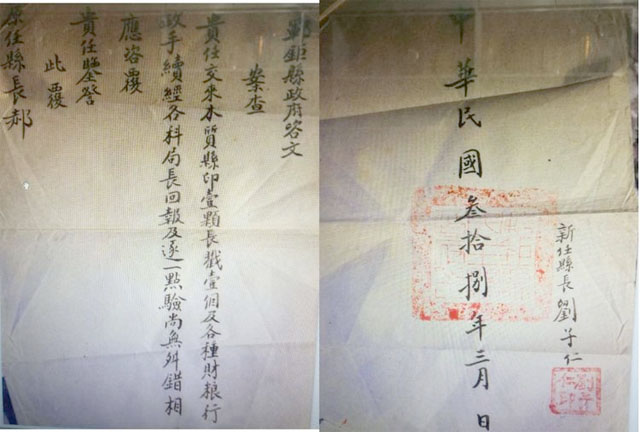 縣政府咨文
案查
貴任交來木質縣印壹顆長戳壹個及各種財粮行
政手續經各科局長回報及逐一點驗尚無舛錯相
應咨覆
貴任鑒詧
此覆
原任縣長郝
新任縣長劉子仁
劉子仁印
中華民國叁拾捌年三月 日